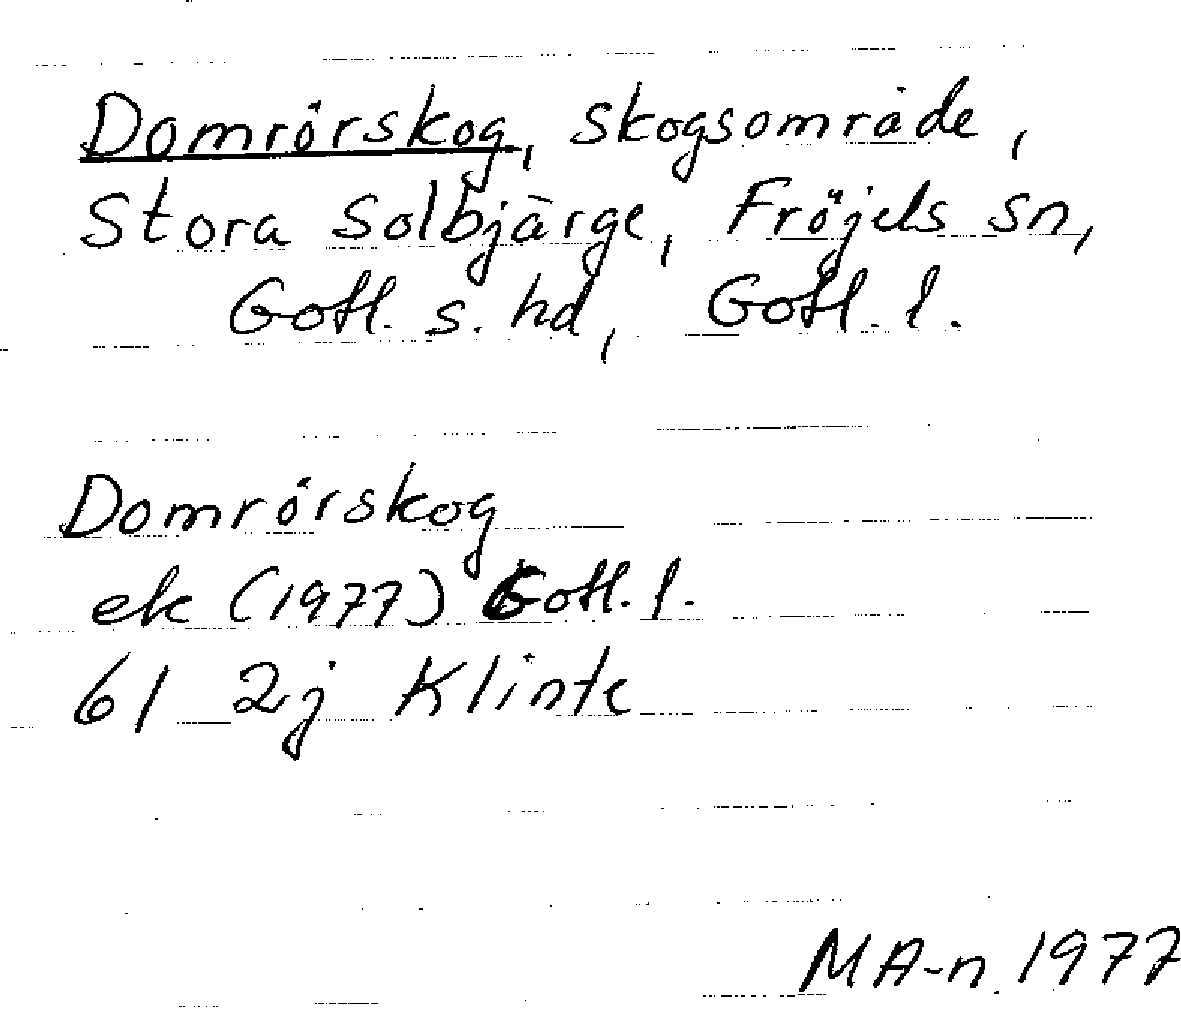 Domrörskog, skogsområde,
Stora Solbjärge, Fröjels sn,
Gotl. s. hd, Gotl. l.
Domrörskog
ek (1977) Gotl. l.
61 2j Klinte
MA-n 1977